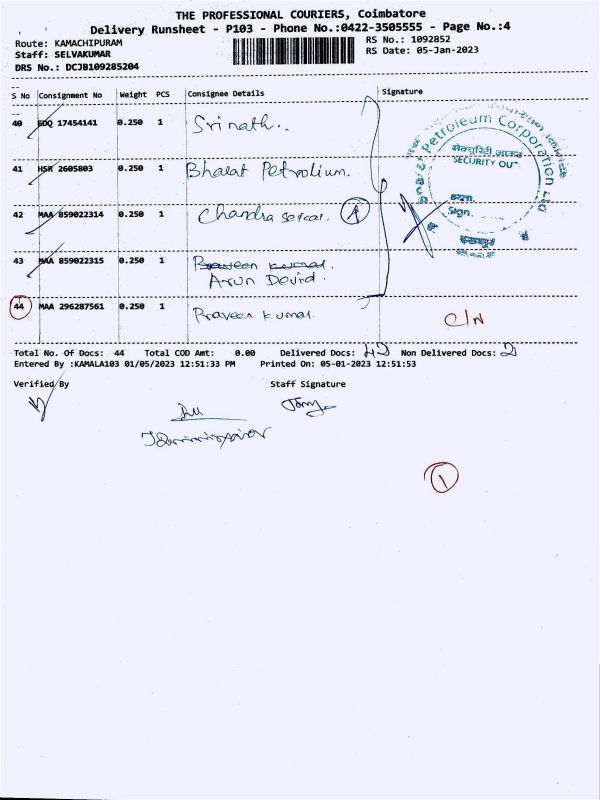 THE PROFESSIONAL COURIERS, Coimbatore
Delivery Runsheet - P103 - Phone No.:0422-3505555 - Page No.:4
Route: KAMACHIPURAM
Staff: SELVAKUMAR
DRS No.: DCJB109285204
RS No.: 1092852
RS Date: 05-Jan-2023
S No Consignment No Weight PCS Consignee Details Signature
40 EDQ 17454141 0.250 1 Srinath..
41 HSR 2605803 0.250 1 Bharat Petrolium.
42 MAA 859022314 0.250 1 Chandra A
43 MAA 859022315 0.250 1 Praveen kumar.
Arun Devid.
44 MAA 296287561 0.250 1 Praveen kumar. C/N
Petroleum Corporation Ltd
SECURITY OUT
Sign.
Total No. Of Docs: 44 Total COD Amt: 0.00 Delivered Docs: 42 Non Delivered Docs: 2
Entered By :KAMALA103 01/05/2023 12:51:33 PM Printed On: 05-01-2023 12:51:53
Verified By Staff Signature
1